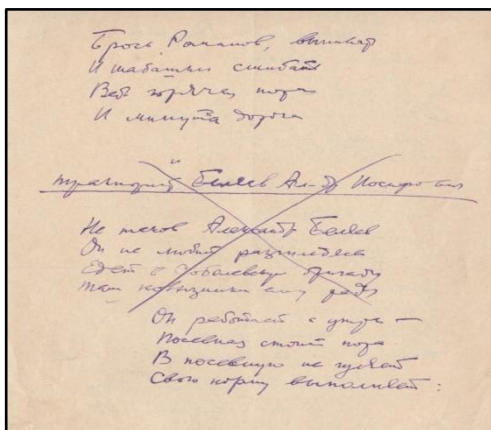 Брось, Романов, выпивать
И шабашки сшибать
Ведь горячая пора
И минута дорога
тракторист Беляев Ал-др Иосифович
Не таков Александр Беляев
Он не любит
Едет в бригаду
Там ему рады
Он работает с утра —
Посевная стоит пора
В посевную не гуляет
Свою норму выполняет: